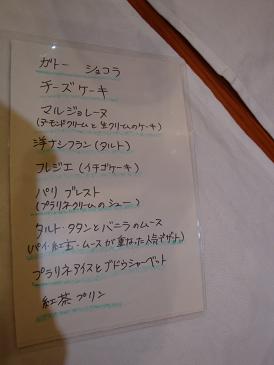 ガトー ショコラ
チーズケーキ
マルジョレーヌ
(アーモンドクリームと生クリームのケーキ)
洋ナシフラン(タルト)
フレジエ(イチゴケーキ)
パリ ブレスト
(プラリネクリームのシュー)
タルト・タタンとバニラのムース
(パイ・紅玉・ムースが重なった人気デザート)
プラリネアイスとブドウシャーベット
紅茶プリン